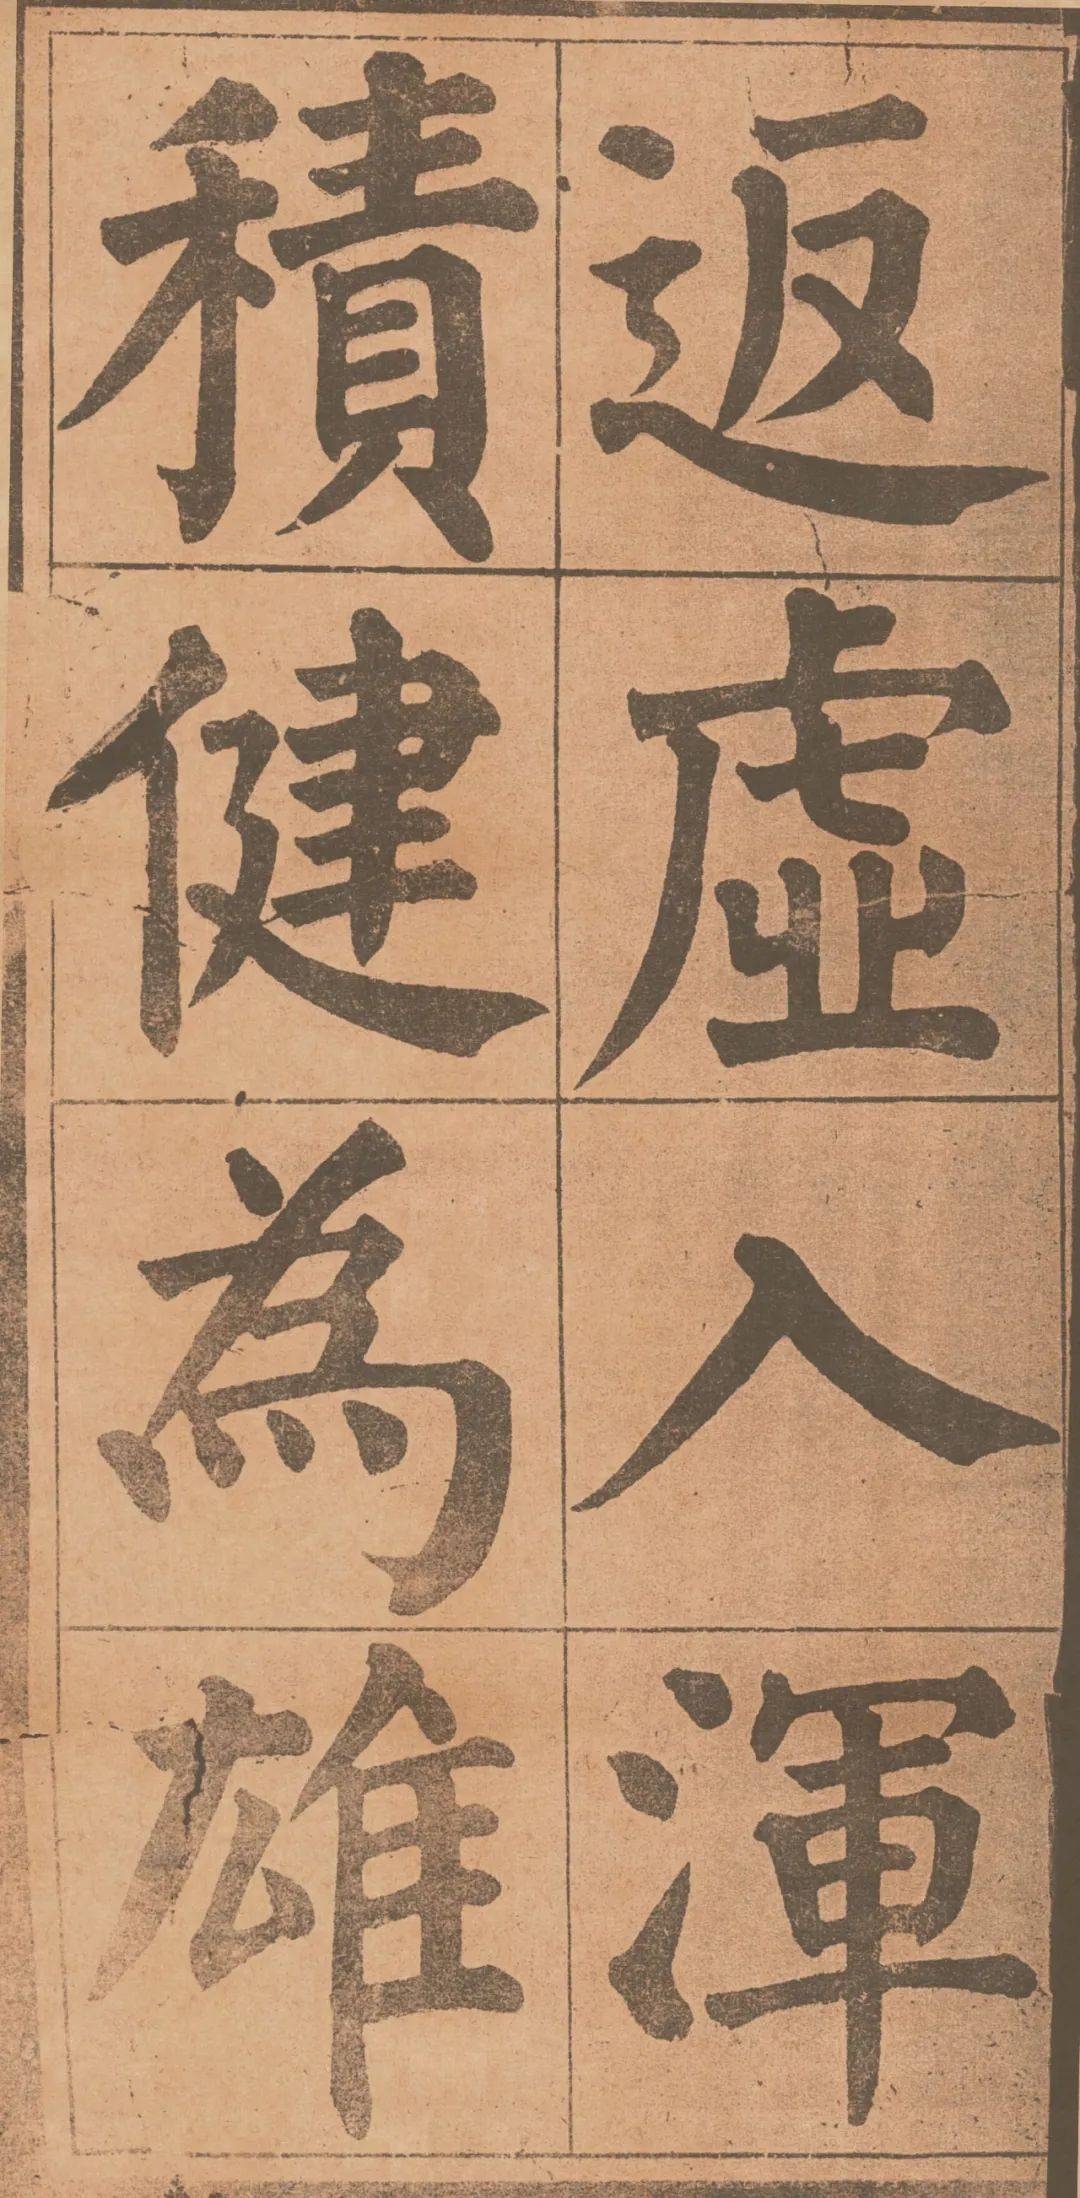 返虛入渾
積健為雄